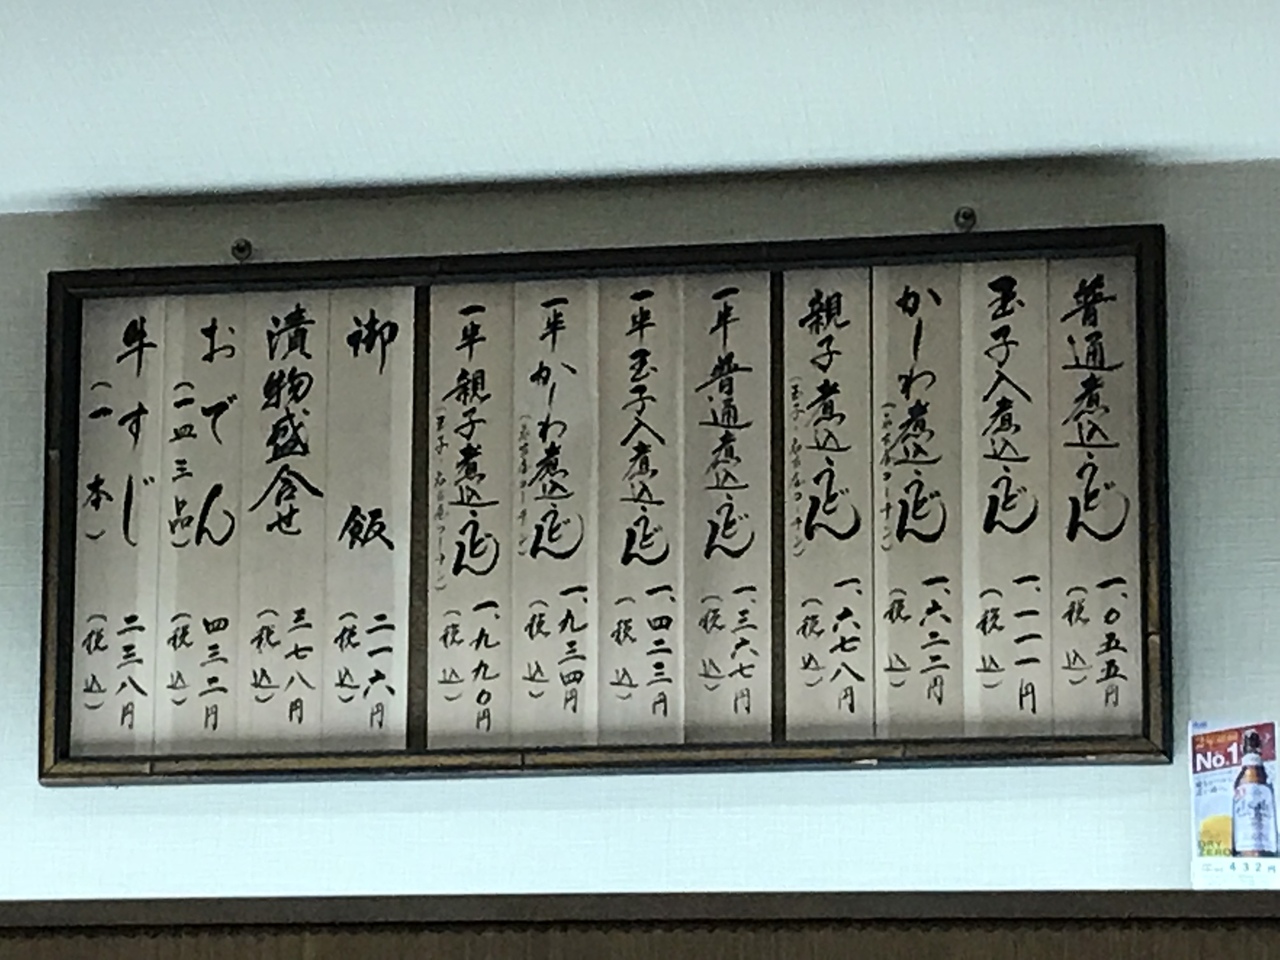 普通煮込うどん 一、〇五五円
(税込)
玉子入煮込うどん 一、一一一円
(税込)
かしわ煮込うどん 一、六二二円
(名古屋コーチン) (税込)
親子煮込うどん 一、六七八円
(玉子・名古屋コーチン) (税込)
一半普通煮込うどん 一、三六七円
(税込)
一半玉子入煮込うどん 一、四二三円
(税込)
一半かしわ煮込うどん 一、九三四円
(名古屋コーチン) (税込)
一半親子煮込うどん 一、九九〇円
(玉子・名古屋コーチン) (税込)
御飯 二一六円
(税込)
漬物盛合せ 三七八円
(税込)
おでん 四三二円
(一皿三品) (税込)
牛すじ 二三八円
(一本) (税込)
No.1
DRY
ZERO
432円